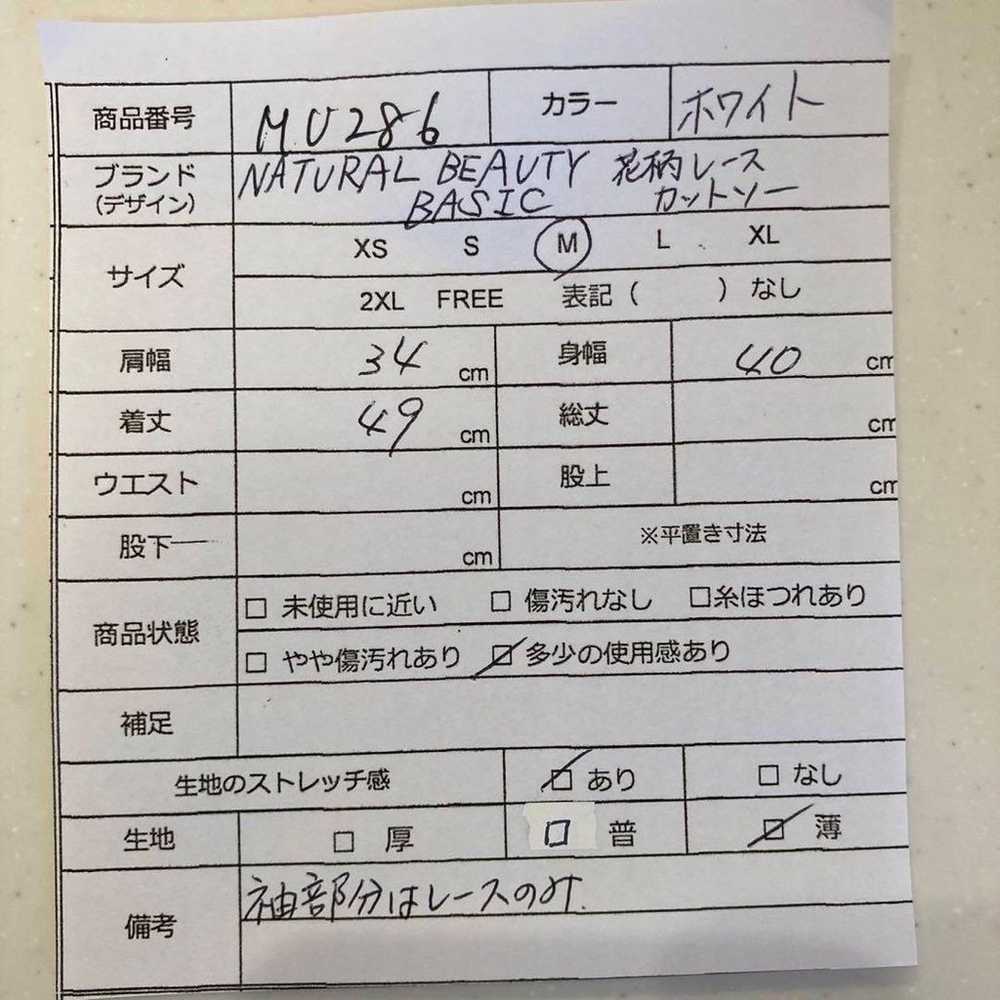 商品番号 MU286 カラー ホワイト
ブランド NATURAL BEAUTY 花柄レース
(デザイン) BASIC カットソー
サイズ XS S M L XL
2XL FREE 表記 ( ) なし
肩幅 34 cm 身幅 40 cm
着丈 49 cm 総丈 cm
ウエスト cm 股上 cm
股下 cm ※平置き寸法
商品状態 □ 未使用に近い □ 傷汚れなし □糸ほつれあり
□ やや傷汚れあり ☑ 多少の使用感あり
補足
生地のストレッチ感 ☑ あり □ なし
生地 □ 厚 □ 普 ☑ 薄
備考 袖部分はレースのみ.